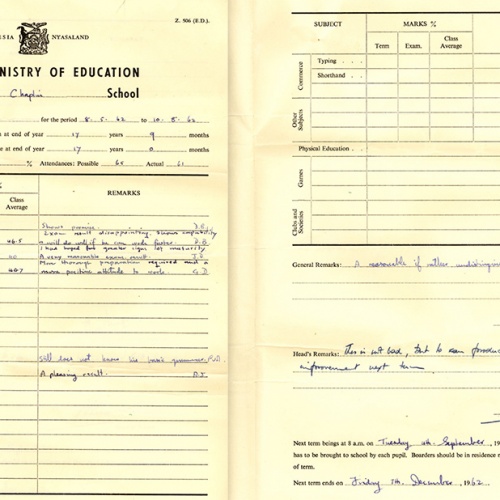 Z. 506 (E.D.).
ESIA NYASALAND
NISTRY OF EDUCATION
Chaplin School
for the period 8.5.62 to 10.8.62
at end of year 17 years 9 months
e at end of year 17 years 0 months
% Attendances: Possible 65 Actual 61
% Class Average REMARKS
Shows promise
Exam result disappointing. Shows capability
46.5 & will do well if he can work faster.
I had hoped for greater signs of maturity
A very reasonable exam result.
More thorough preparation required and a
467 more positive attitude to work. G.D.
Still does not know his basic grammar
A pleasing result.
SUBJECT MARKS %
Term Exam. Class Average
Commerce
Typing . . .
Shorthand . . .
Other Subjects
Physical Education . .
Games
Clubs and Societies
General Remarks: A reasonable if rather
Head's Remarks: This is not bad, but he can produce
improvement next term
Next term beings at 8 a.m. on Tuesday 4th September, 19
has to be brought to school by each pupil. Boarders should be in residence
of term.
Next term ends on Friday 7th December, 1962.